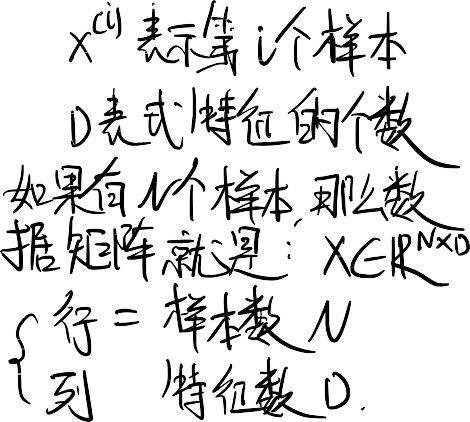 x^(i) 表示第 i 个样本
D表式特征的个数
如果有N个样本,那么数
据矩阵就是: X∈ℝ^N×D
{ 行 = 样本数 N
列 特征数 D.